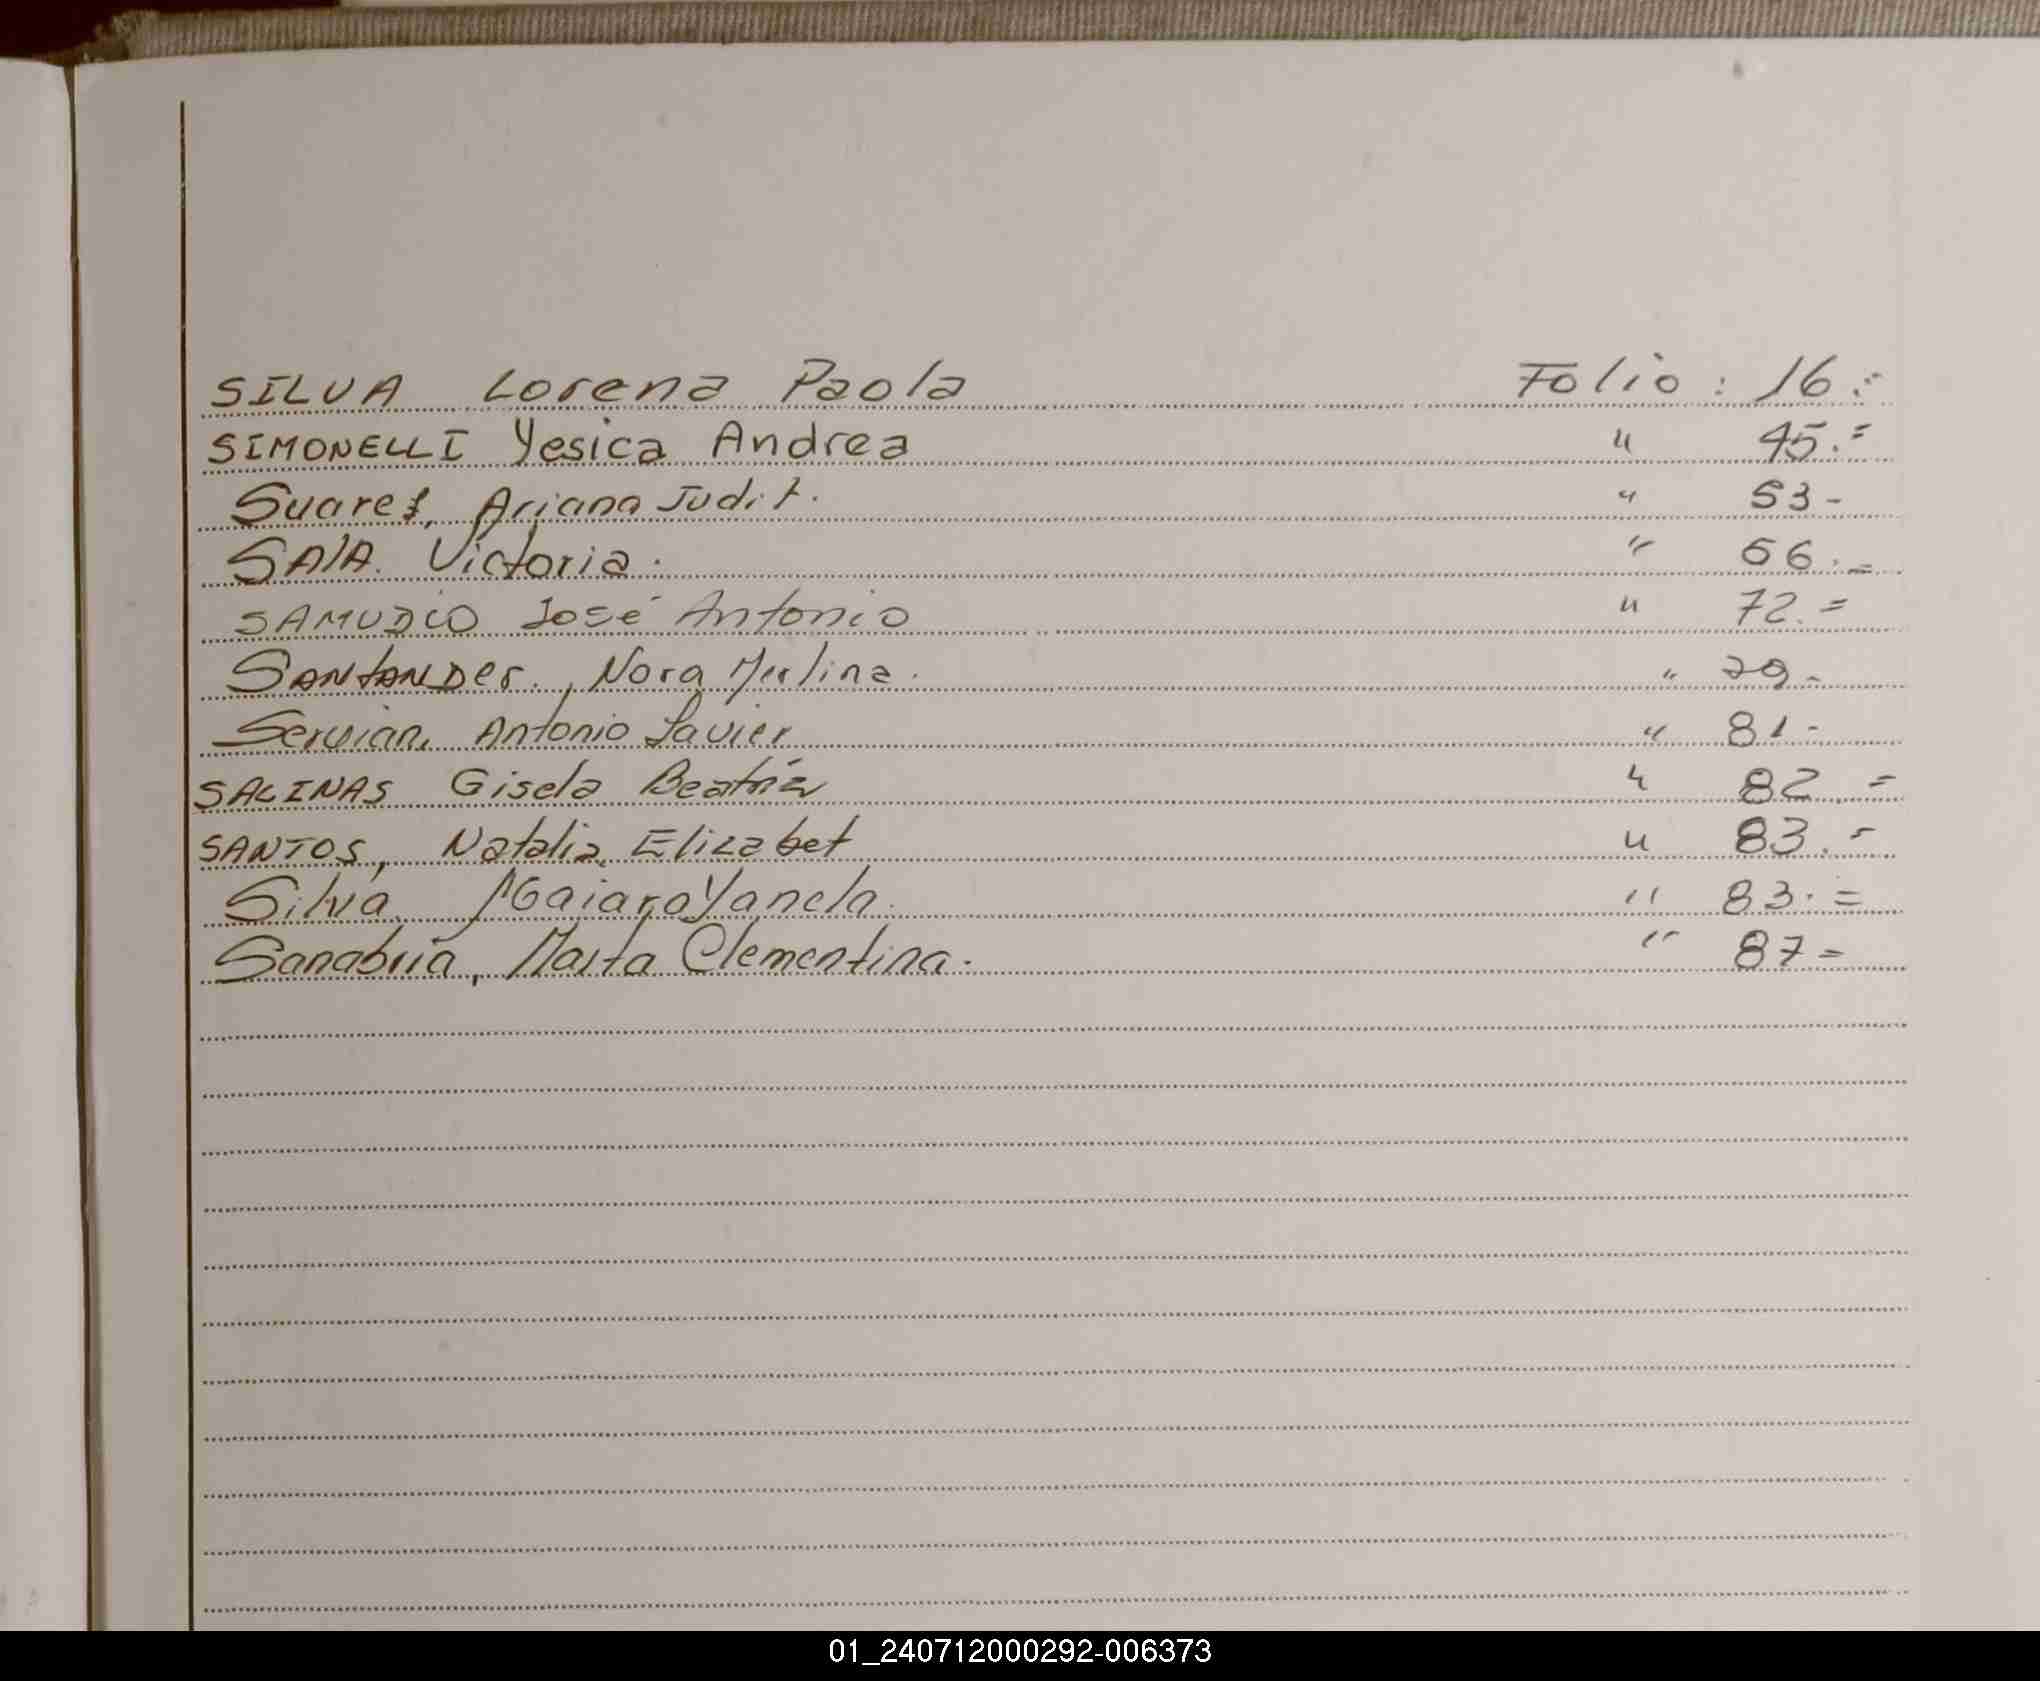 SILVA Lorena Paola Folio : 16.=
SIMONELLI Yesica Andrea " 45.=
Suarez, Ariana Judit. " 53-
SAlA. Victoria. " 66.=
SAMUDIO José Antonio " 72.=
SANTANDer., Nora Merlina. " 79.-
Servian, Antonio Javier " 81-
SALINAS Gisela Beatríz " 82=
SANTOS, Natalia Elizabet " 83.=
Silva Maiara Yanela. " 83.=
Sanabria, Marta Clementina. " 87=
01_240712000292-006373